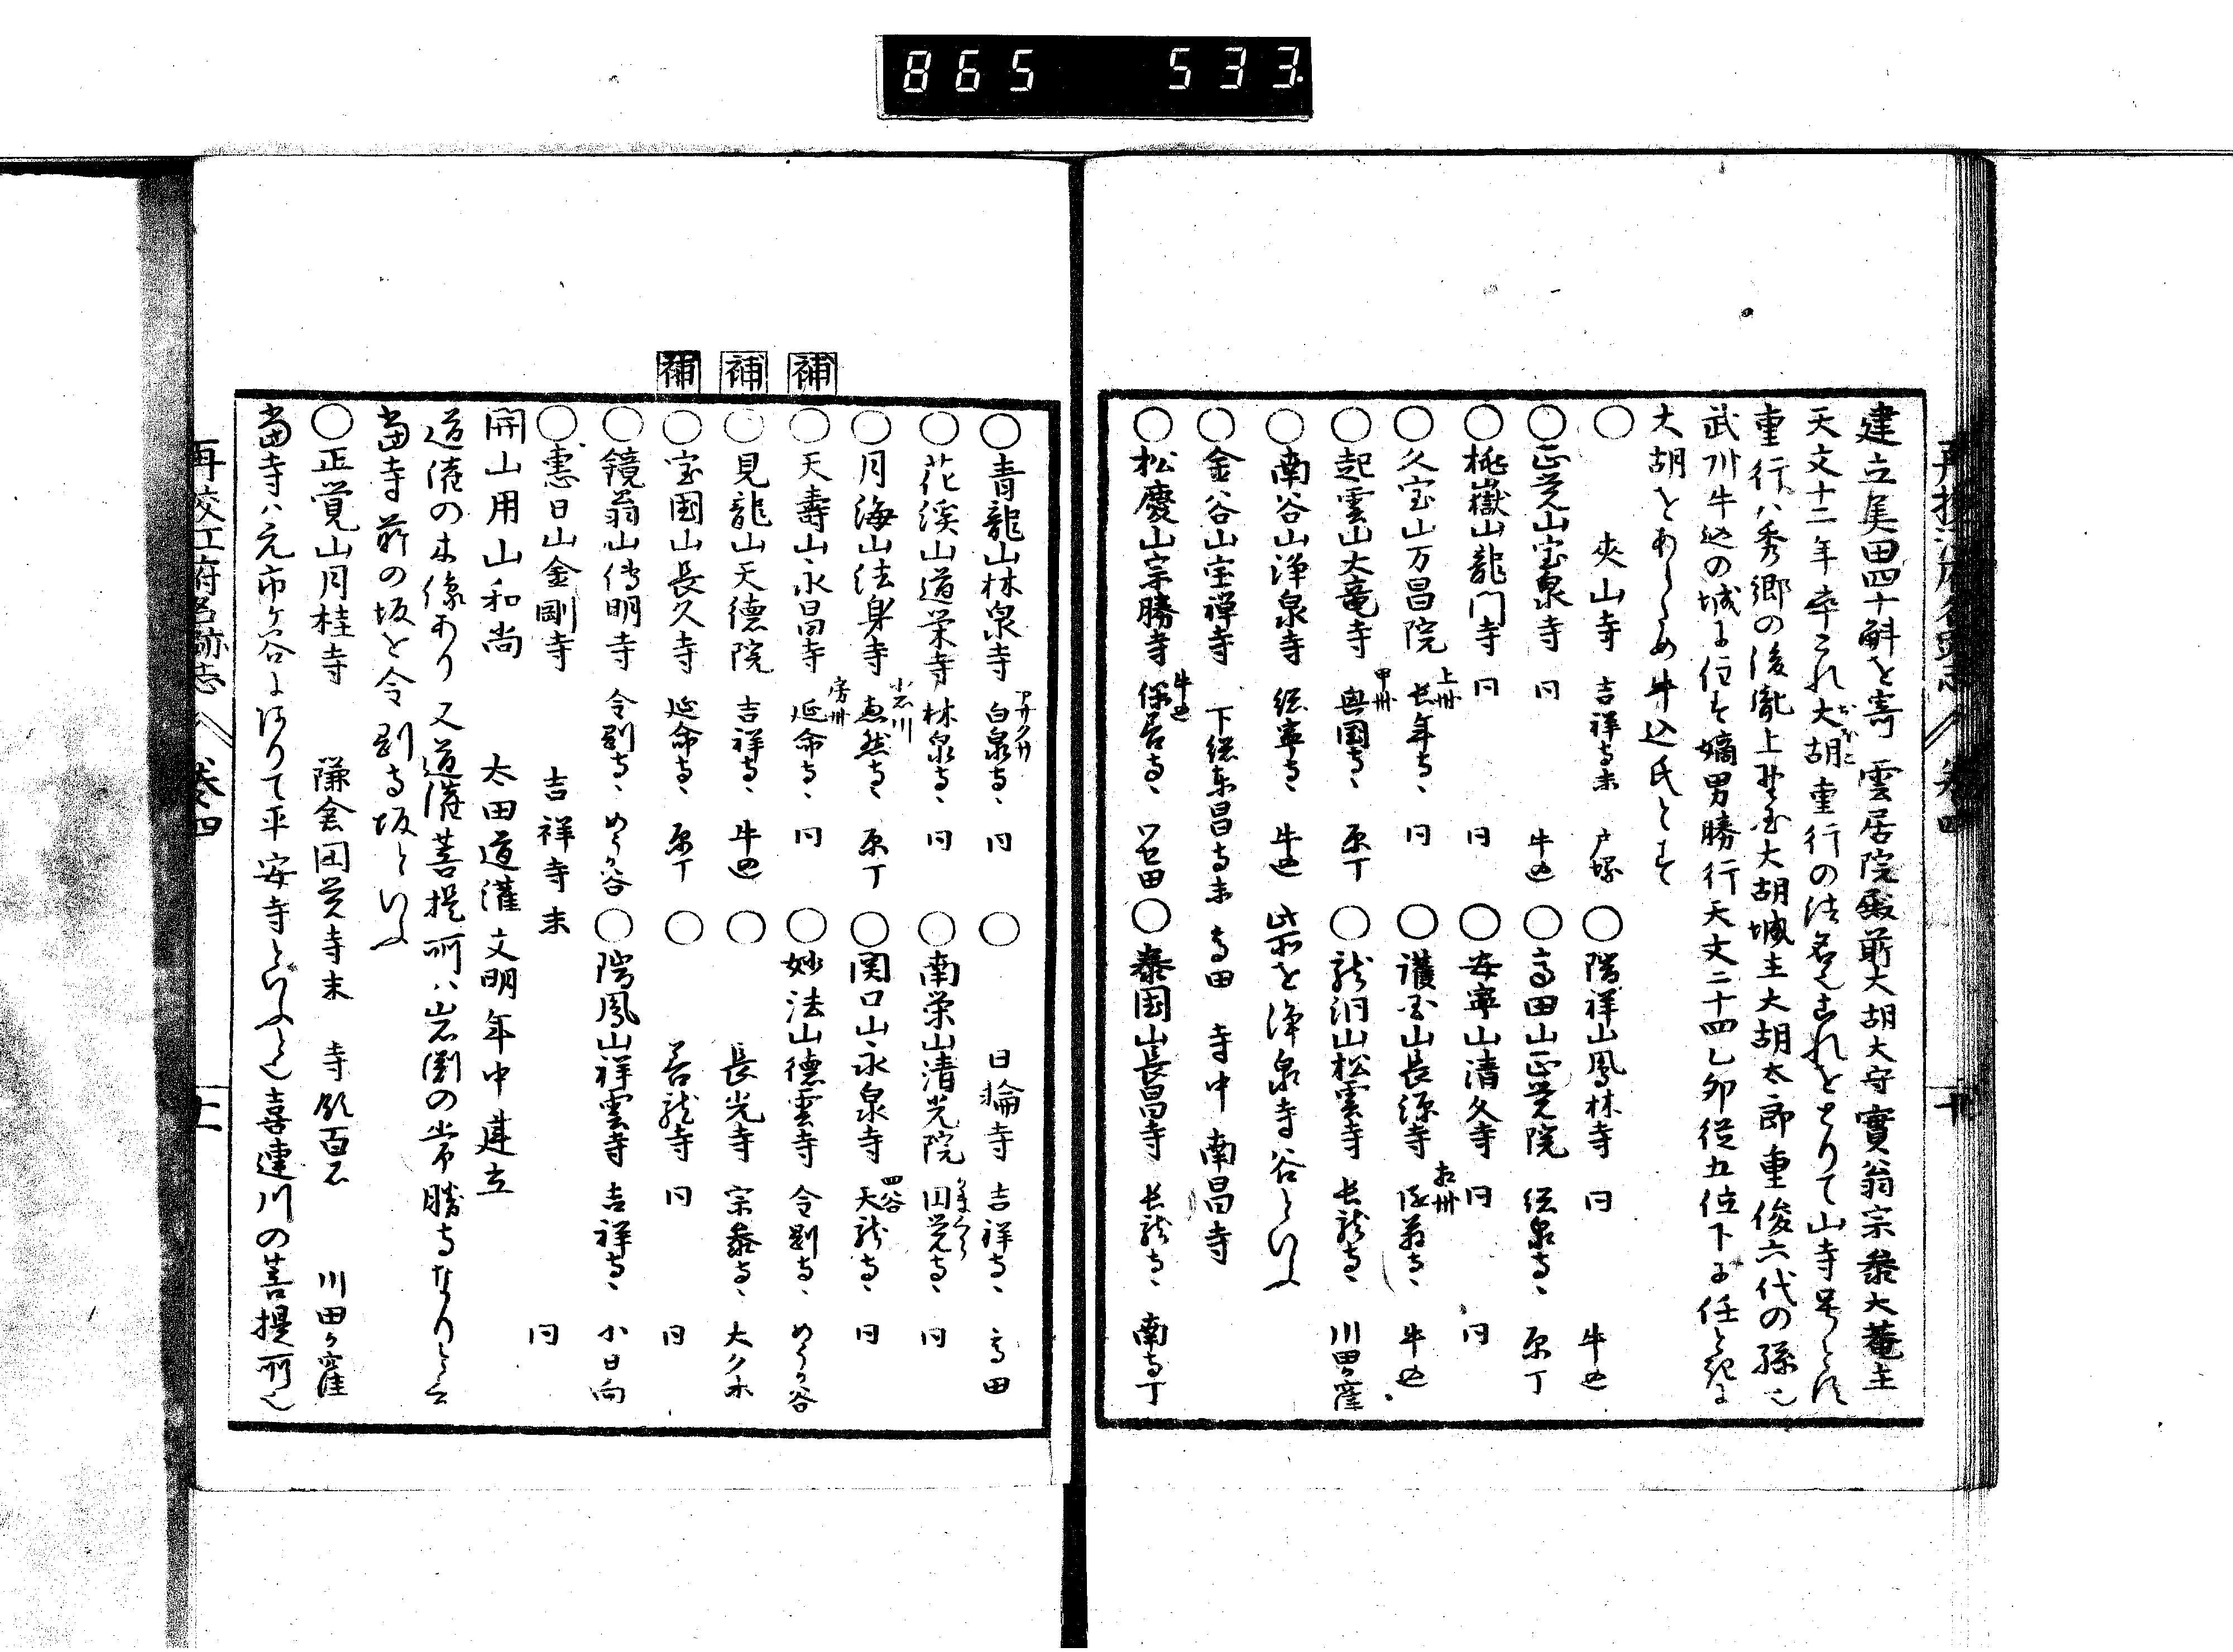 865 533
建立美田四十斛を寄 雲居院殿前大胡大守實翁宗参大菴主
天文十二年卒これ大胡重行の法名也これをとりて山寺号とす
重行ハ秀郷の後胤上野国大胡城主大胡太郎重俊六代の孫也
武州牛込の城に住す嫡男勝行天文二十四乙卯従五位下に任
大胡をあらため牛込氏とす
○ 夾山寺 吉祥寺末 戸塚 ○隣祥山鳳林寺 同 牛込
○正覚山宝泉寺 同 牛込 ○高田山正覚院 泉寺、 原丁
○桃嶽山龍門寺 同 同 ○安寧山清久寺 同 同
○久宝山万昌院 上州 長年寺、 同 ○護国山長源寺 牛込
○起雲山大竜寺 甲州 興国寺、 原丁 ○龍泊山松雲寺 長龍寺、 川田ヶ窪
○南谷山浄泉寺 総寧寺、 牛込 此所を浄泉寺谷といふ
○金谷山宝禅寺 下総東昌寺末 高田 寺中 南昌寺
○松慶山宗勝寺 牛込 保善寺、 ワセ田 ○泰国山長昌寺 長龍寺、 南寺丁
補 補 補
○青龍山林泉寺 白泉寺、 同 ○ 日輪寺 吉祥寺、 高田
○花渓山道栄寺 林泉寺、 同 ○南栄山清光院 かまくら 円覚寺、 同
○月海山法身寺 小石川 恵然寺、 原丁 ○関口山永泉寺 四谷 天龍寺、 同
○天壽山永昌寺 房州 延命寺、 同 ○妙法山徳雲寺 金剛寺、 めうか谷
○見龍山天徳院 吉祥寺、 牛込 ○ 長光寺 宗参寺、 大久木
○宝国山長久寺 延命寺、 原丁 ○ 善龍寺 同 同
○鏡翁山伝明寺 金剛寺、 めうか谷 ○隣鳳山祥雲寺 吉祥寺、 小日向
○恵日山金剛寺 吉祥寺末 同
開山用山和尚 太田道灌文明年中建立
道灌の木像あり又道灌菩提所ハ岩淵の常勝寺なりと云
當寺前の坂を金剛寺坂といふ
○正覚山月桂寺 鎌倉円覚寺末 寺領百石 川田ヶ窪
當寺ハ元市ヶ谷にありて平安寺といふと也喜連川の菩提所也
再校江府名跡志 巻四 十一